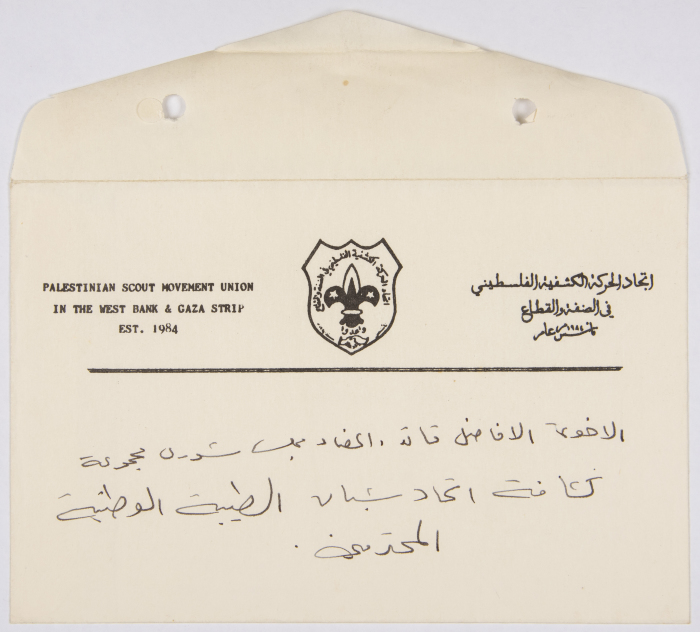 PALESTINIAN SCOUT MOVEMENT UNION
IN THE WEST BANK & GAZA STRIP
EST. 1984
اتحاد الحركة الكشفية الفلسطيني
في الضفة والقطاع
تأسس عام ١٩٨٤
وأعدوا
الاخوة الافاضل قائد واعضاء مجلس شورى مجموعة
كشافة اتحاد شبان الطيبة الوطنية
المحترمين .